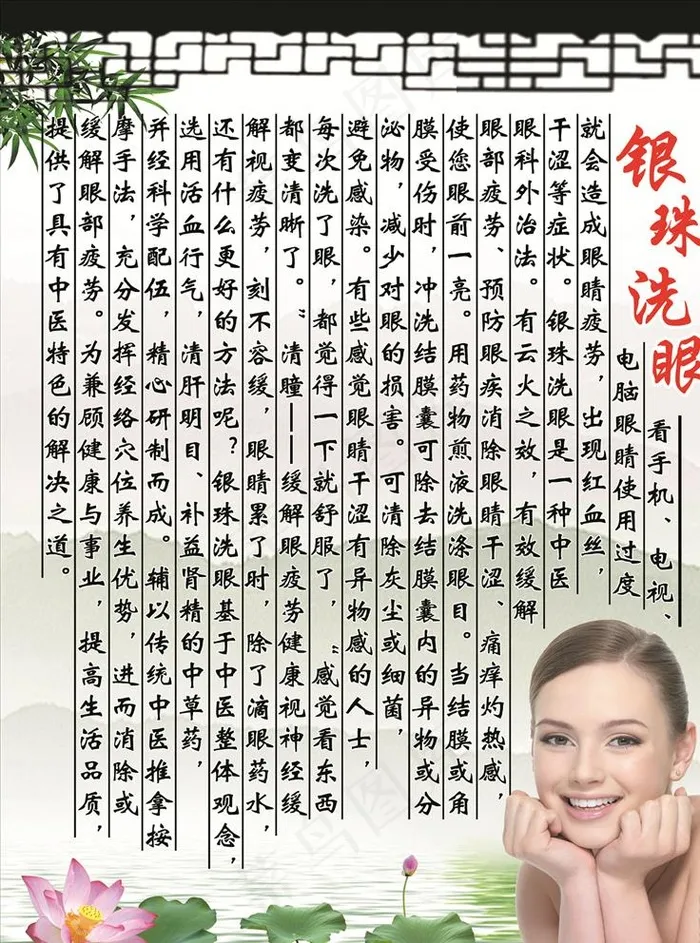 银珠洗眼
看手机、电视、
电脑眼睛使用过度
就会造成眼睛疲劳，出现红血丝，
干涩等症状。银珠洗眼是一种中医
眼科外治法。有云火之效，有效缓解
眼部疲劳、预防眼疾消除眼睛干涩、痛痒灼热感，
使您眼前一亮。用药物煎液洗涤眼目。当结膜或角
膜受伤时，冲洗结膜囊可除去结膜囊内的异物或分
泌物，减少对眼的损害。可清除灰尘或细菌，
避免感染。有些感觉眼睛干涩有异物感的人士，
每次洗了眼，都觉得一下就舒服了，“感觉看东西
都变清晰了。”清瞳——缓解眼疲劳健康视神经缓
解视疲劳，刻不容缓，眼睛累了时，除了滴眼药水，
还有什么更好的方法呢？银珠洗眼基于中医整体观念，
选用活血行气，清肝明目、补益肾精的中草药，
并经科学配伍，精心研制而成。辅以传统中医推拿按
摩手法，充分发挥经络穴位养生优势，进而消除或
缓解眼部疲劳。为兼顾健康与事业，提高生活品质，
提供了具有中医特色的解决之道。